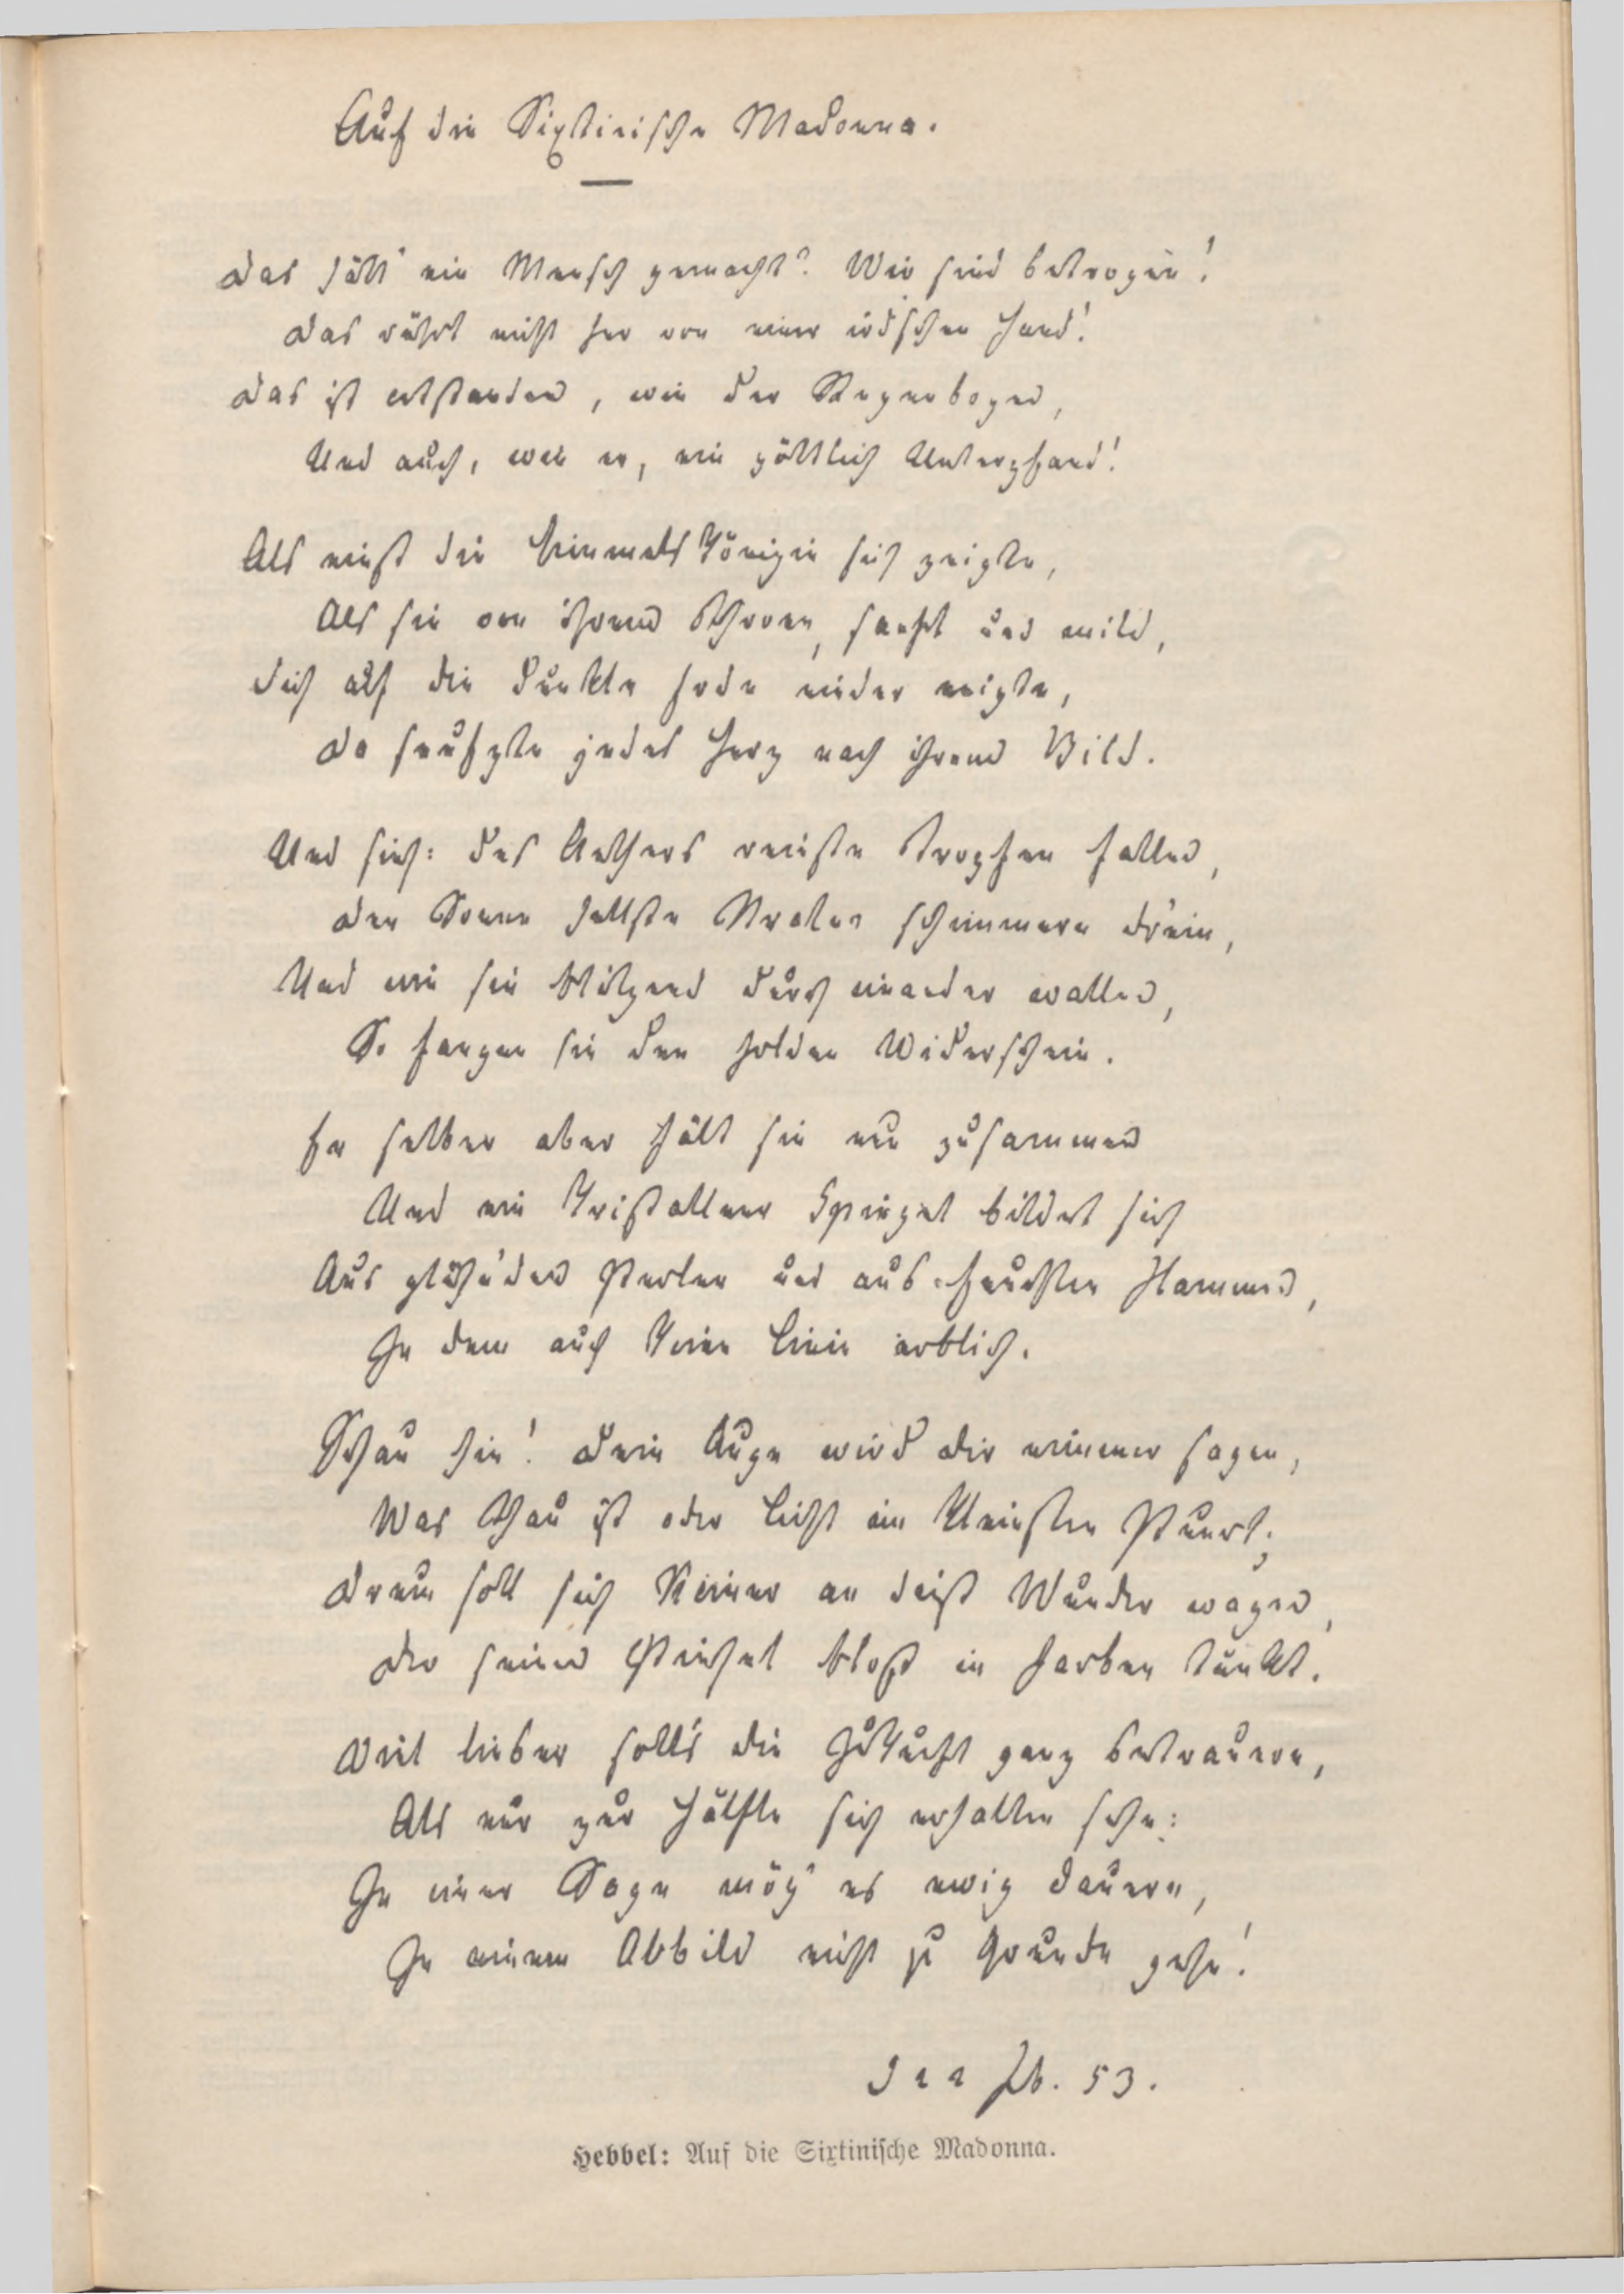 Auf die Sixtinische Madonna.
Das hätt' ein Mensch gemacht? Wir sind betrogen!
Das rührt nicht her von einer ird'schen Hand!
Das ist entstanden, wie der Regenbogen,
Und auch, wie er, ein göttlich Unterpfand!
Als einst die Himmelskönigin sich zeigte,
Als sie von ihrem Thron, sanft und mild,
Sich auf die dunkle Erde nieder neigte,
Da seufzte jedes Herz nach ihrem Bild.
Und sieh: des Aethers reinste Tropfen fallen,
Der Sonne hellste Stralen schimmern d'rein,
Und wie sie blitzend durch einander wallen,
So fangen sie den holden Widerschein.
Er selber aber hält sie nun zusammen
Und ein kristallner Spiegel bildet sich
Aus glüh'nden Perlen und aus feuchten Flammen,
In dem auch keine Linie erblich.
Schau hin! Dein Auge wird dir nimmer sagen,
Was Thau ist oder Licht im kleinsten Punct;
Drum soll sich Keiner an dieß Wunder wagen,
Der seinen Pinsel bloß in Farben tunkt.
Viel lieber soll's die Zukunft ganz betrauern,
Als nur zur Hälfte sich erhalten sehn:
In einer Sage mög' es ewig dauern,
In einem Abbild nicht zu Grunde gehn!
Fr. Hb. 53.
Hebbel: Auf die Sixtinische Madonna.